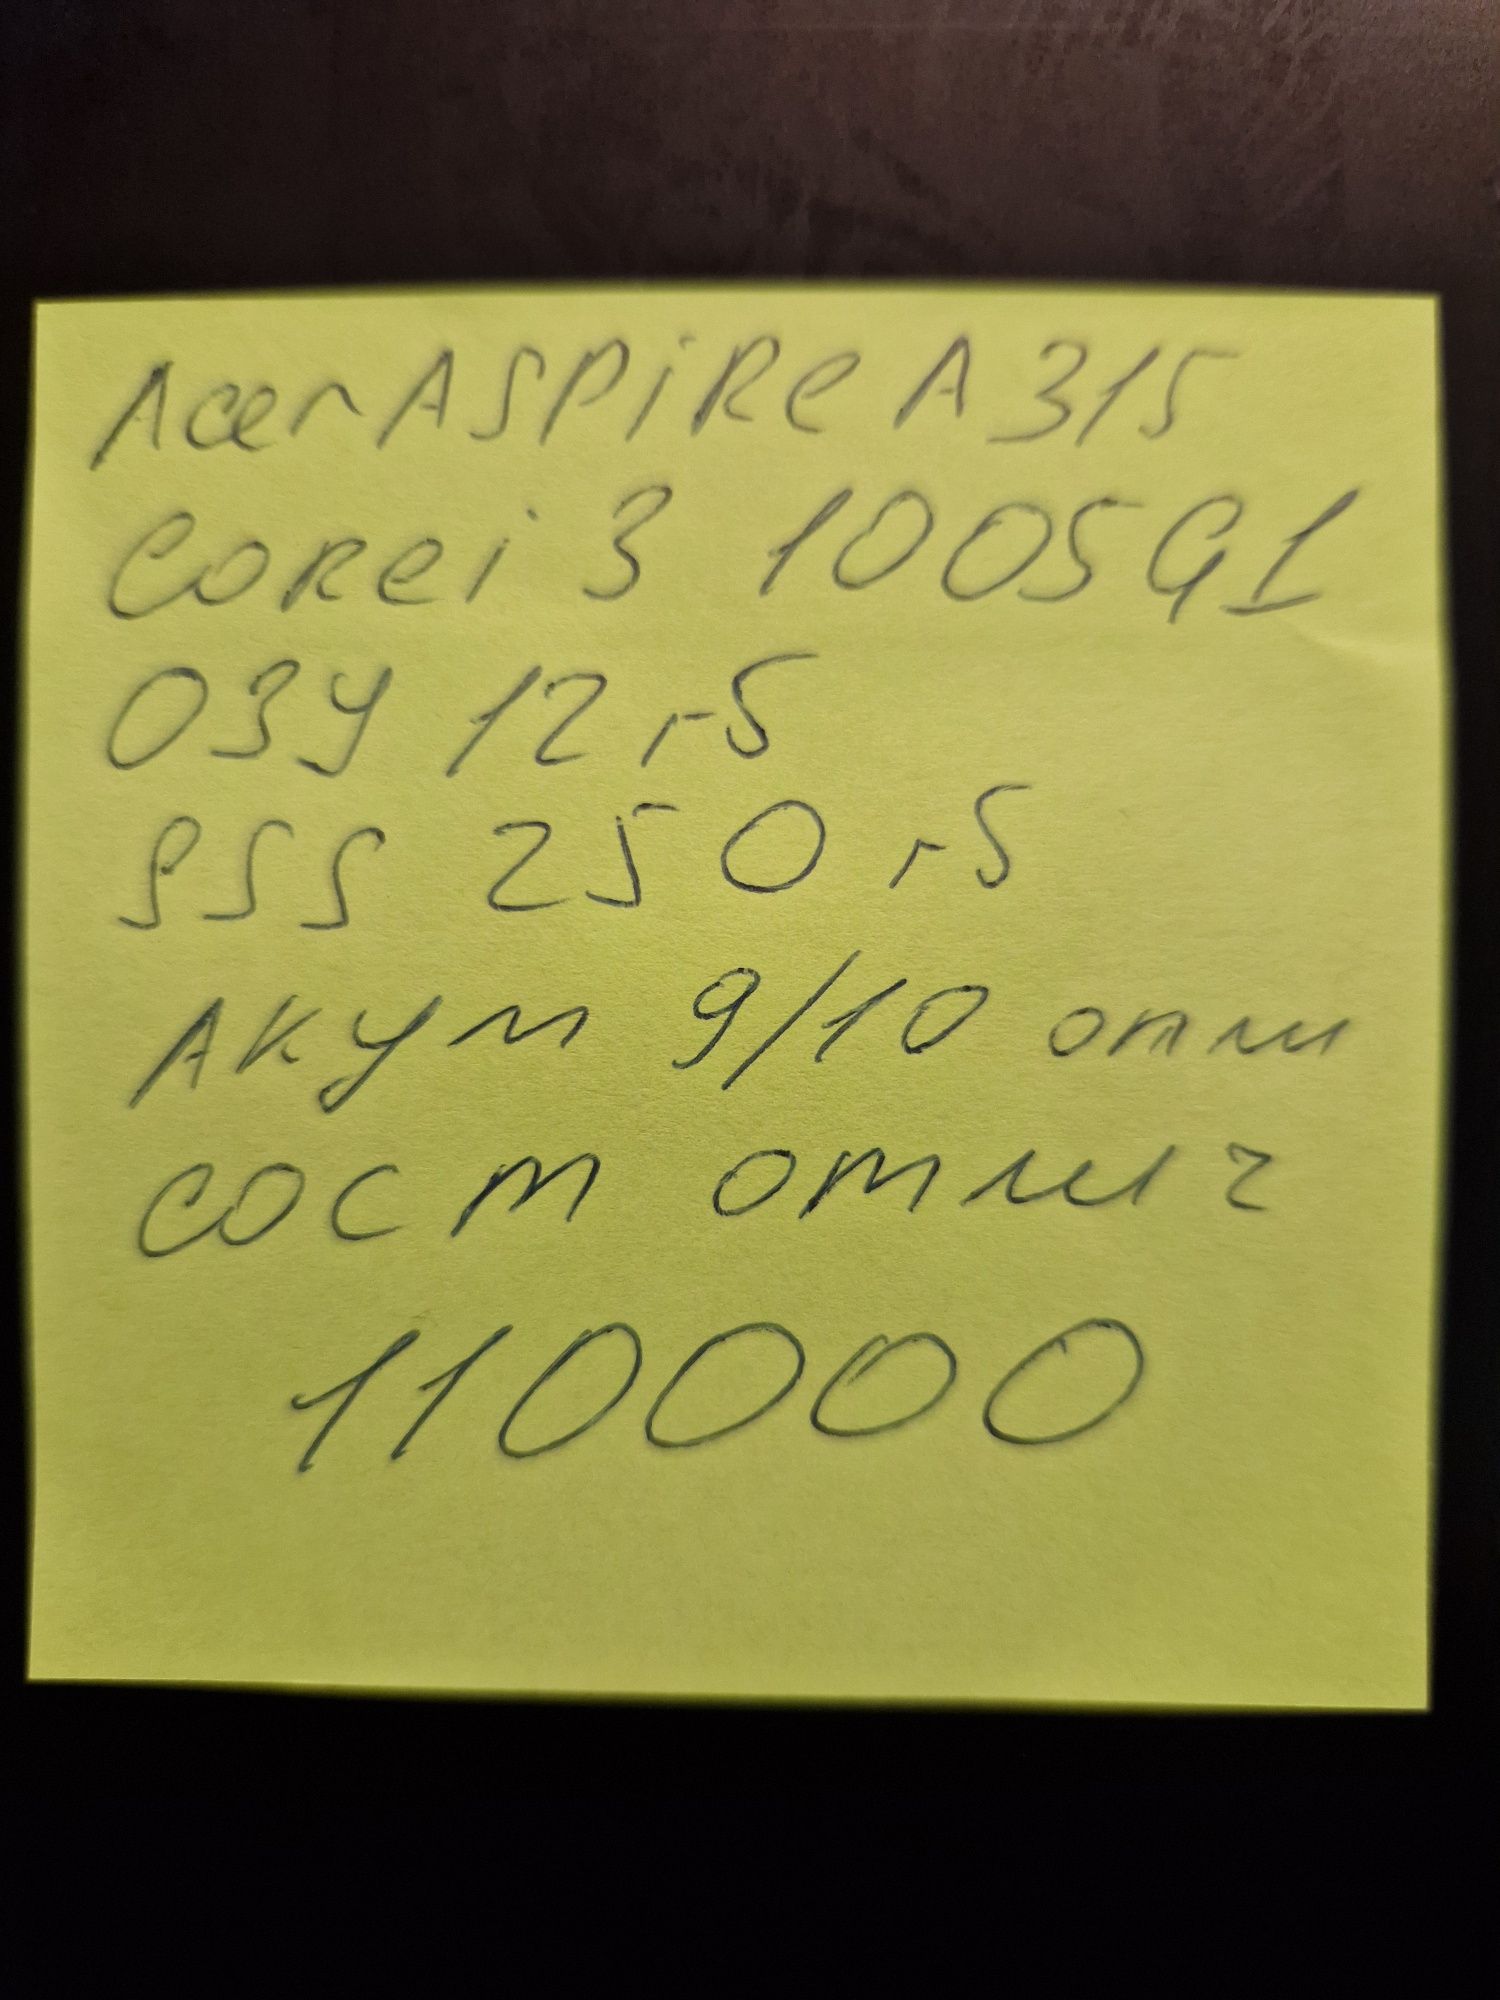 Acer ASPiRe A315
Corei 3 1005G1
ОЗУ 12 гб
SSS 250 гб
Акум 9/10 отли
сост отлич
110000